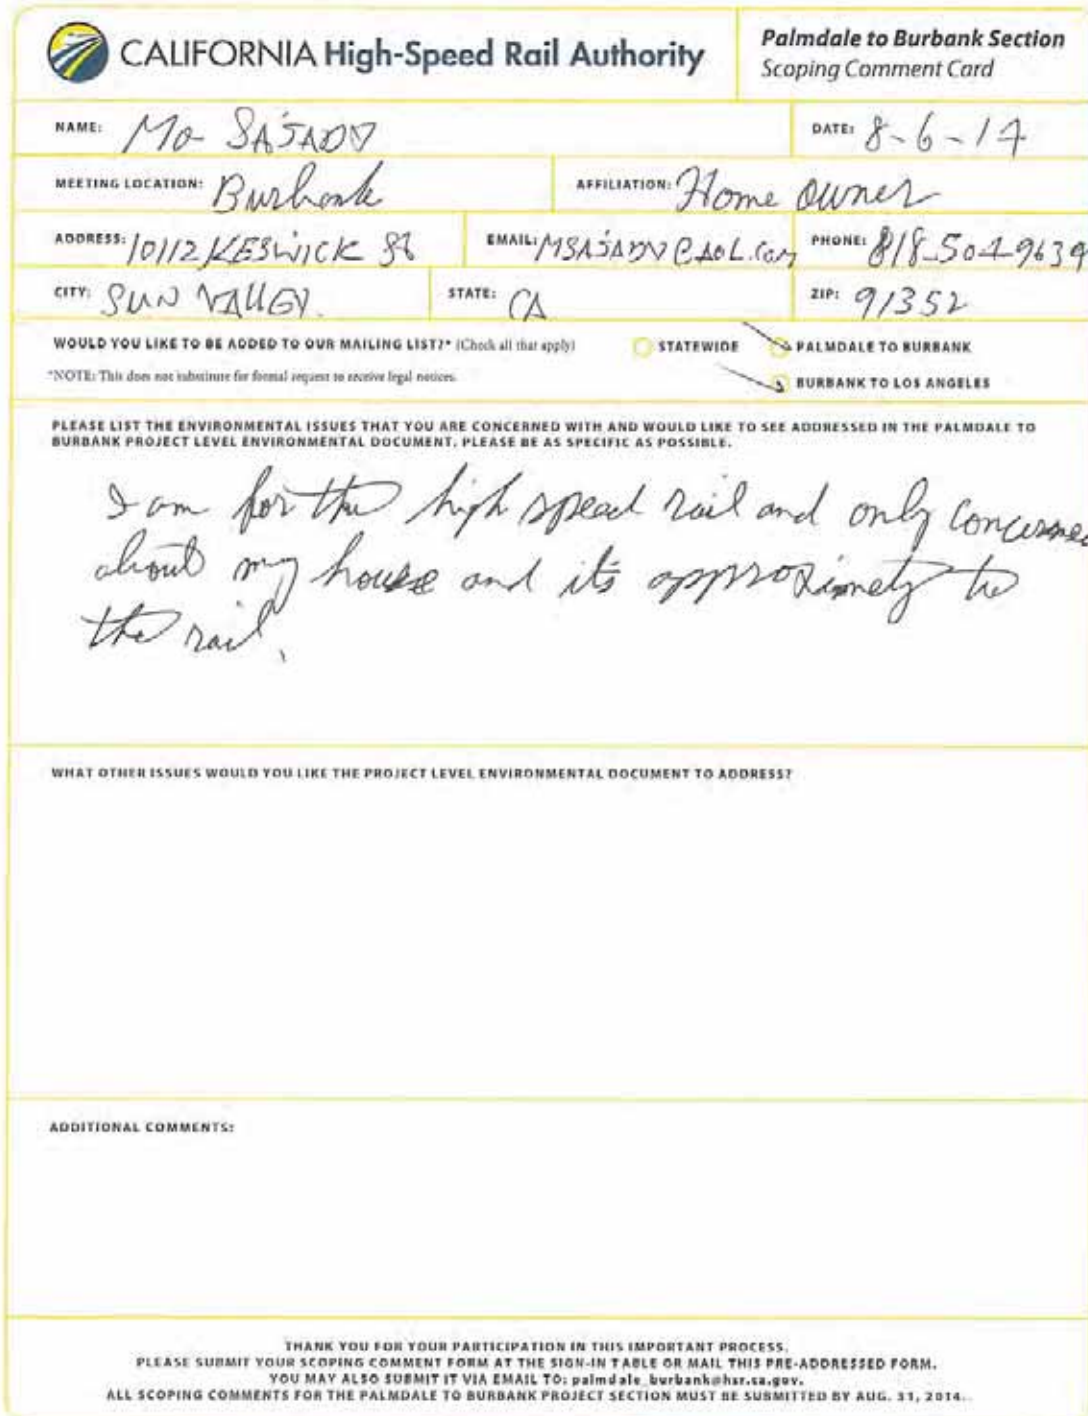 CALIFORNIA High-Speed Rail Authority
Palmdale to Burbank Section
Scoping Comment Card
NAME: Mo
DATE: 8-6-14
MEETING LOCATION: Burbank
AFFILIATION: Home owner
ADDRESS: 10112 KESWICK St
EMAIL:
PHONE: 818-504-9639
CITY: SUN VALLEY.
STATE: CA
ZIP: 91352
WOULD YOU LIKE TO BE ADDED TO OUR MAILING LIST?* (Check all that apply)
STATEWIDE
PALMDALE TO BURBANK
*NOTE: This does not substitute for formal request to receive legal notices.
BURBANK TO LOS ANGELES
PLEASE LIST THE ENVIRONMENTAL ISSUES THAT YOU ARE CONCERNED WITH AND WOULD LIKE TO SEE ADDRESSED IN THE PALMDALE TO
BURBANK PROJECT LEVEL ENVIRONMENTAL DOCUMENT. PLEASE BE AS SPECIFIC AS POSSIBLE.
I am for the high speed rail and only concerned
about my house and it's approximety to
the rail.
WHAT OTHER ISSUES WOULD YOU LIKE THE PROJECT LEVEL ENVIRONMENTAL DOCUMENT TO ADDRESS?
ADDITIONAL COMMENTS:
THANK YOU FOR YOUR PARTICIPATION IN THIS IMPORTANT PROCESS.
PLEASE SUBMIT YOUR SCOPING COMMENT FORM AT THE SIGN-IN TABLE OR MAIL THIS PRE-ADDRESSED FORM.
YOU MAY ALSO SUBMIT IT VIA EMAIL TO: palmdale_burbank@hsr.ca.gov.
ALL SCOPING COMMENTS FOR THE PALMDALE TO BURBANK PROJECT SECTION MUST BE SUBMITTED BY AUG. 31, 2014.